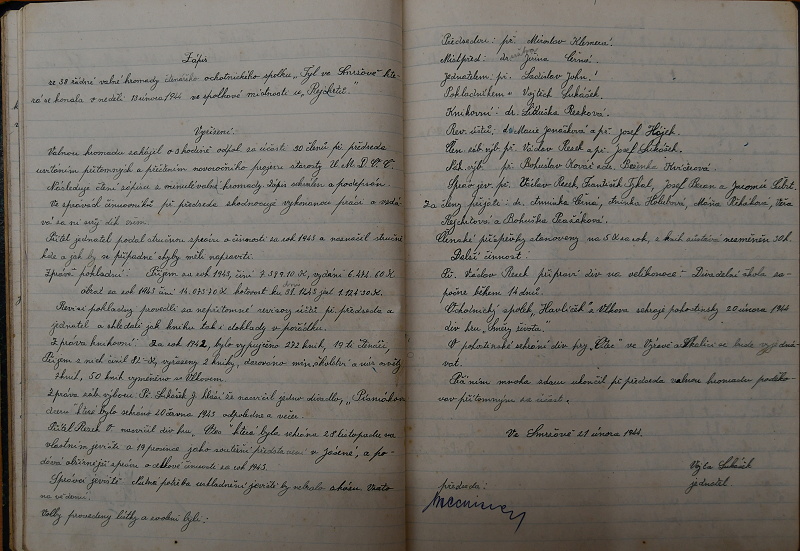 Zápis
ze 38 řádné valné hromady čtenářsko ochotnického spolku „Tyl ve Smržově“ kte-
rá se konala v neděli 13 února 1944 ve spolkové místnosti u „Rejchrtů“.
Vyřízení:
Valnou hromadu zahájil o 3 hodině odpol. za účasti 30 členů př. předseda
uvítáním přítomných a přečtením novoročního projevu starosty Ú. M. D. O. Č.
Následuje čtení zápisu z minulé valné hromady. Zápis schválen a podepsán.
Ve zprávách činovníků př. předseda zhodnocuje vykonanou práci a
Přítel jednatel podal stručnou zprávu o činnosti za rok 1943 a naznačil stručně
kde a jak by se případné chyby měli napraviti.
Zpráva pokladní: Příjem za rok 1943, činí 7.599.10 K, vydání 6.474.60 K
obrat za rok 1943 činí 14.073.70 K hotovost ku 31. 1943 jest 1.124.50 K.
Revisi pokladny provedli za nepřítomné revisory účtů př. předseda a
jednatel a shledali jak knihu tak i doklady v pořádku.
Zpráva knihovní: Za rok 1942, bylo vypůjčeno 272 knih, 19 ti čtenáři,
Příjem z nich činil 92.- K, vyřazeny 2 knihy, darováno min. školství a nár. osvěty
2 knih, 50 knih vyměněno s Vlkovem.
Zpráva rež. výboru: Př. Lukáček J. hlásí že nacvičil jedno divadlo, „Písničkou
která bylo sehrána 40 června 1943 odpoledne a večer.
Přítel Resek V. nacvičil div. hru „Otec“ která byla sehrána 28 listopadu na
vlastním jevišti a 19 prosince jako soutěžní představení v Jasené, a po-
dává obšírnější zprávu o celkové činnosti za rok 1943.
Správa jeviště: Nutná potřeba uskladnění jeviště by nebralo zkázu. Vzato
na vědomí.
Volby provedeny lístky a zvoleni byli:
Předsedou: př. Miroslav Klemera.
Místpřed: dr. Jiřina Černá.
Jednatelem: př. Ladislav John.
Pokladníkem „ Vojtěch Lukáček.
Knihovní: dr. Liduška Resková.
Rev. účtů, dr. Marie Jonášková a př. Josef Hájek.
Člen. záb. výb. př. Václav Resek a př. Josef Lukáček.
Náh. výb. př. Bohuslav Kovář a dr. Boženka
Správ. jev. př. Václav Resek František Tykal, Josef Beran a Jaromír
Za členy přijati: dr. Aninka Černá, Aninka Holubová, Máňa Věra
Rejchrtová a Bohunka
Členské příspěvky stanoveny na 5 K za rok, z knih zůstává nezměněn 30 h.
Další činnost:
Př. Václav Resek připraví div. na velikonoce – Divadelní škola za-
počne během 14 dnů.
Ochotnický spolek „Havlíček“ z Vlkova sehraje pohostinsky 20 února 1944
div. hru „Směry života.“
O pohostinské sehrání div. hry „Otec“ ve Výravě a se bude vyjedná-
vat.
Přáním mnoha zdaru ukončil př. předseda valnou hromadu poděko-
vav přítomným za účast.
Ve Smržově 21 února 1944.
Vojta Lukáček
jednatel
předseda: